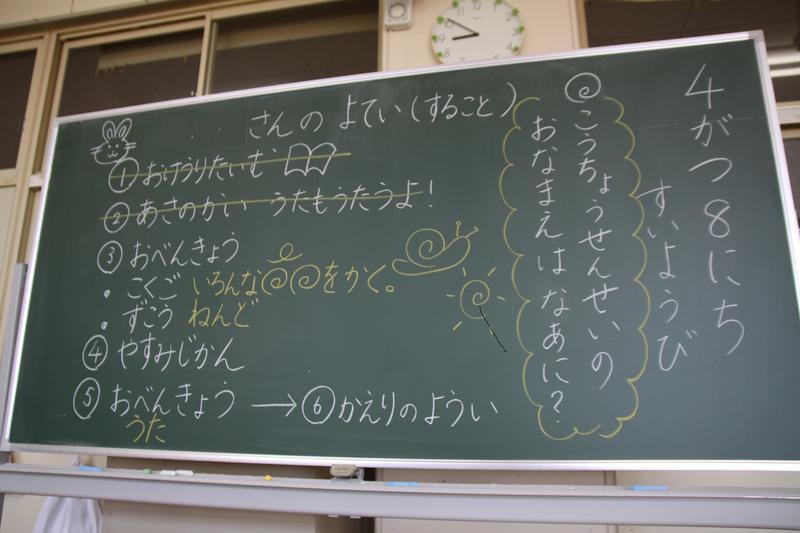 4がつ8にち
すいようび
こうちょうせんせいの
おなまえはなあに?
さんの よてい(すること)
① たいむ
② あさのかい うたもうたうよ!
③ おべんきょう
・こくご いろんな をかく。
・ずこう ねんど
④ やすみじかん
⑤ おべんきょう → ⑥ かえりのようい
うた